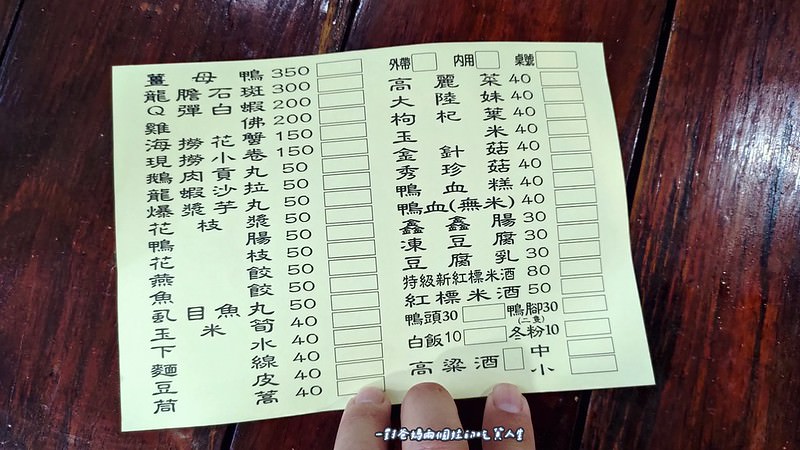 薑母鴨 350
龍膽石斑 300
Q彈白蝦 200
雞佛 200
海撈花蟹 150
現撈小卷 150
鵝肉貢丸 50
龍蝦沙拉 50
爆漿芋丸 50
花枝漿 50
鴨腸 50
花枝 50
燕餃 50
魚餃 50
虱目魚丸 50
玉米筍 40
下水 40
麵線 40
豆皮 40
茼蒿 40
外帶 內用 桌號
高麗菜 40
大陸妹 40
枸杞葉 40
玉米 40
金針菇 40
秀珍菇 40
鴨血糕 40
鴨血(無米) 40
鑫鑫腸 30
凍豆腐 30
豆腐乳 30
特級新紅標米酒 80
紅標米酒 50
鴨頭30 鴨腳30
(二隻)
白飯10 冬粉10
高粱酒 中
小